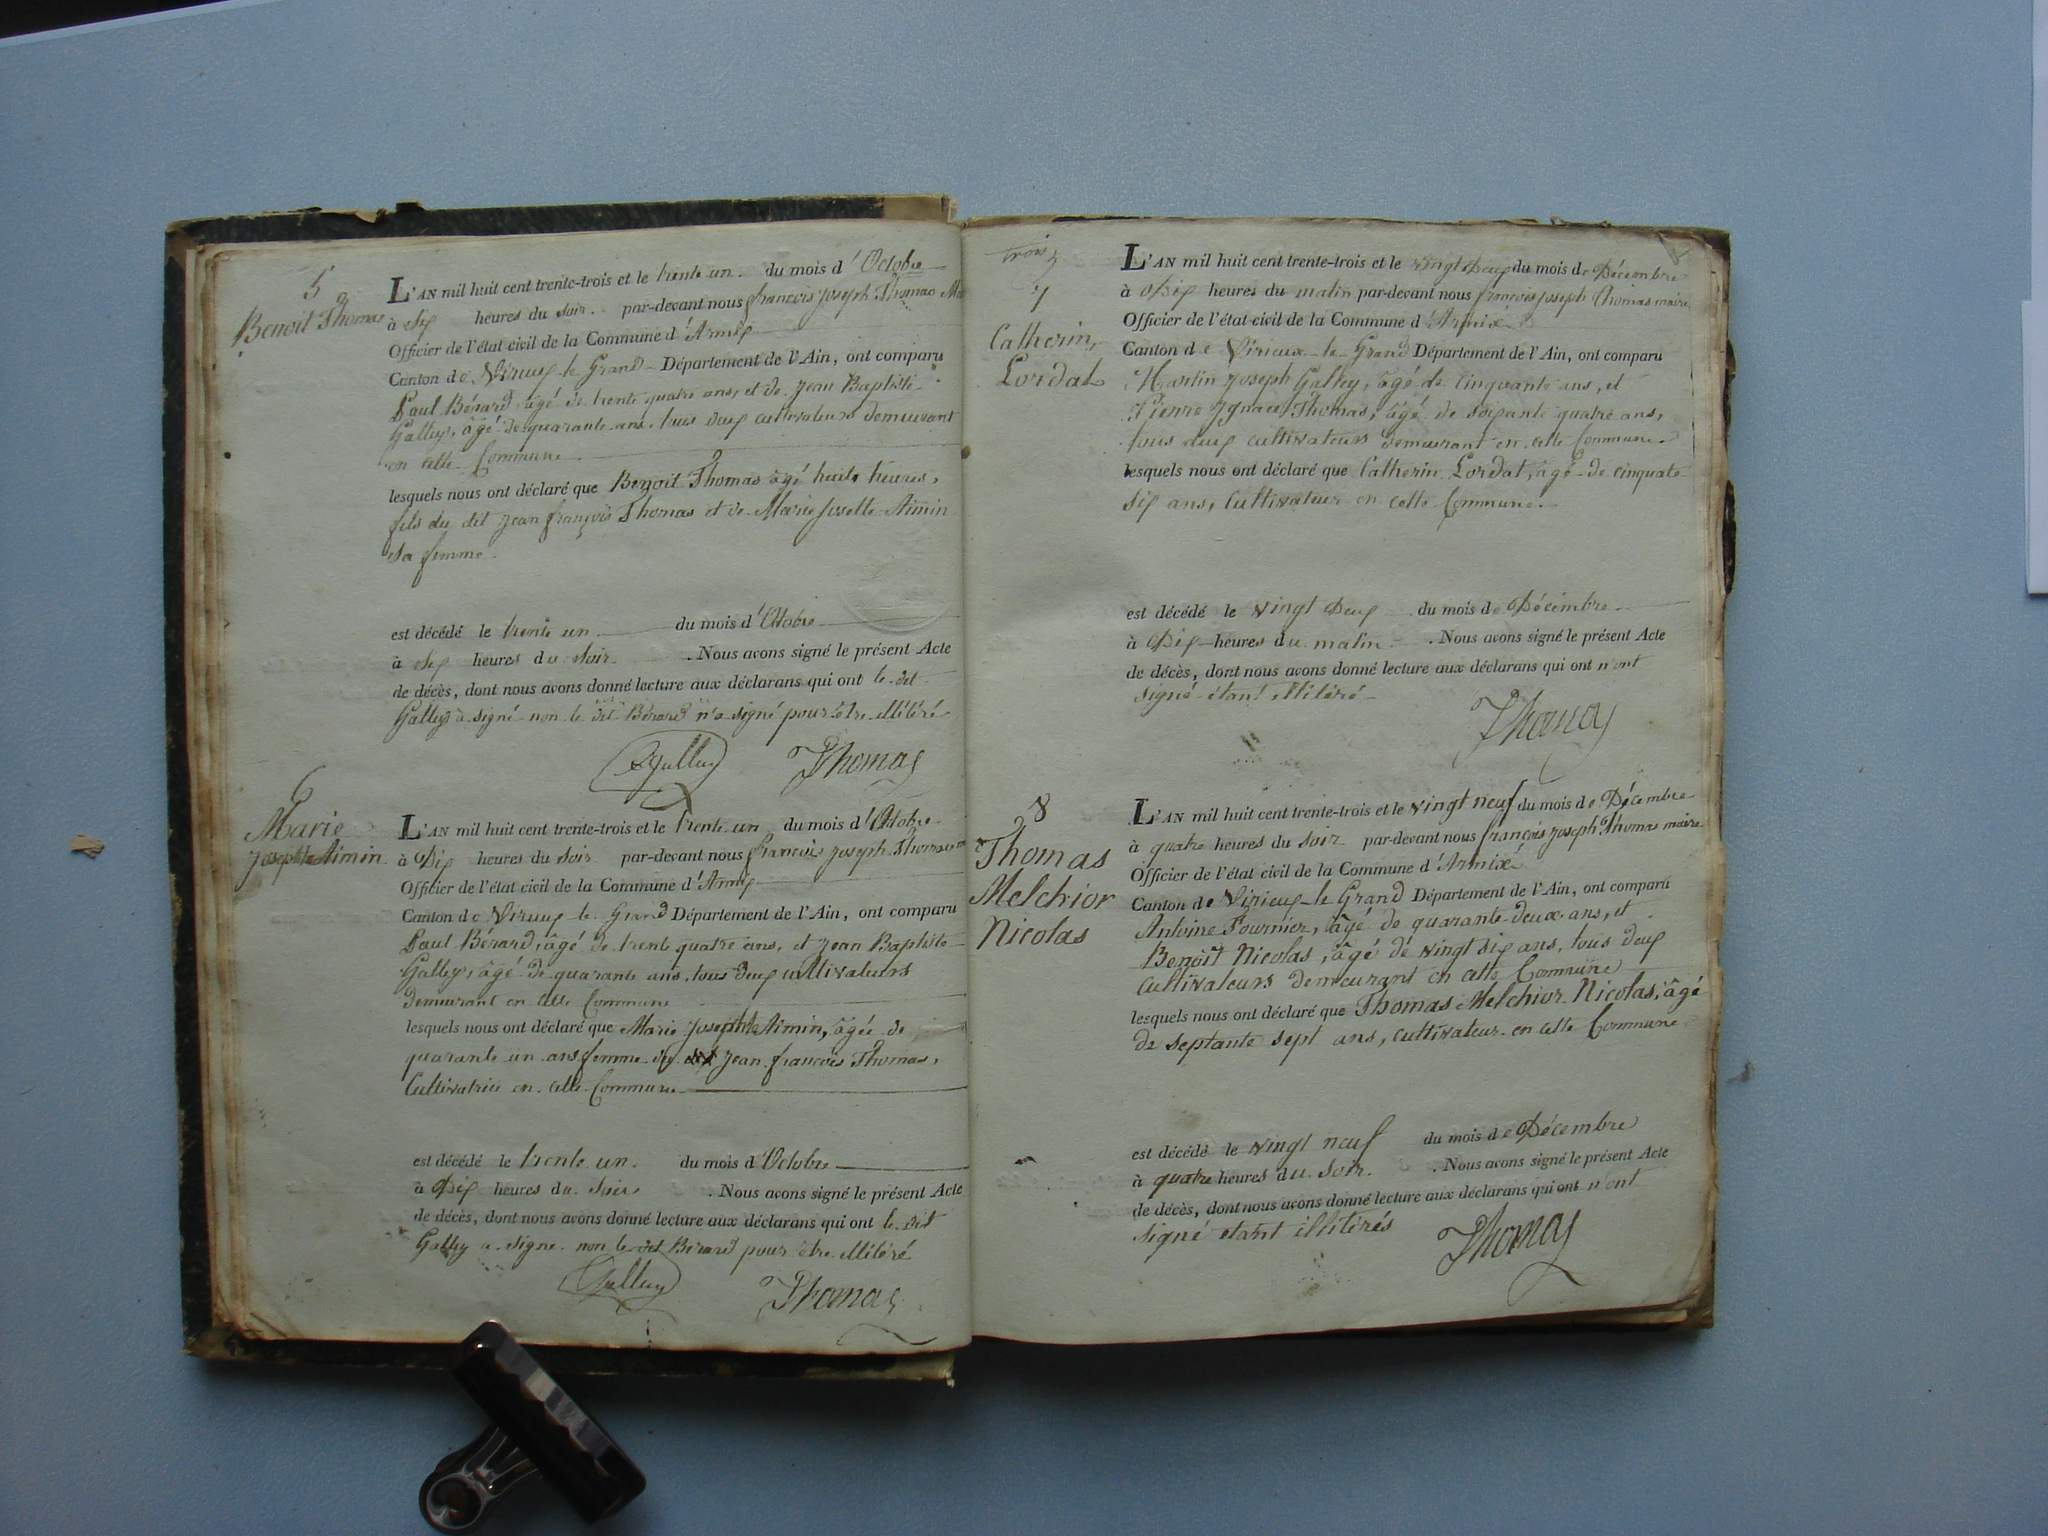 5
Benoit Thomas
L'AN mil huit cent trente-trois et le trente un. du mois d'Octobre
à Six heures du Soir. par-devant nous françois joseph Thomas
Officier de l'état civil de la Commune d'Armix
Canton de Virieux-le Grand Département de l'Ain, ont comparu
Paul Bérard âgé de trente quatre ans, et de jean Baptiste
Galley, âgé de quarante ans, tous deux cultivateurs demeurant
en cette Commune
lesquels nous ont déclaré que Benoit Thomas âgé huit heures,
fils du dit jean françois Thomas et de Marie Josette Aimin
sa femme.
est décédé le trente un du mois d'Octobre
à Six heures du Soir .Nous avons signé le présent Acte
de décès, dont nous avons donné lecture aux déclarans qui ont le dit
Galley a signé non le dit Bérard n'a signé pour être illitéré
Galley Thomas
6
Marie
Josephte Aimin
L'AN mil huit cent trente-trois et le trente un du mois d'Octobre
à Dix heures du Soir par-devant nous francois joseph Thomas
Officier de l'état civil de la Commune d'Armix
Canton de Virieux-le Grand Département de l'Ain, ont comparu
Paul Bérard, âgé de trente quatre ans, et jean Baptiste
Galley, âgé de quarante ans, tous deux cultivateurs
demeurant en cette Commune
lesquels nous ont déclaré que Marie josephte Aimin, âgée de
quarante un ans femme de jean francois Thomas,
Cultivatrice en cette Commune
est décédé le trente un. du mois d'Octobre
à Dix heures du Soir .Nous avons signé le présent Acte
de décès, dont nous avons donné lecture aux déclarans qui ont le dit
Galley a signé non le dit Bérard pour être illitéré
Galley Thomas
trois
7
Catherin,
Lordat
L'AN mil huit cent trente-trois et le vingt Deux du mois de Décembre
à Dix heures du matin par-devant nous françois joseph Thomas maire
Officier de l'état civil de la Commune d'Armix
Canton de Virieux-le-Grand Département de l'Ain, ont comparu
Martin joseph Galley, âgé de cinquante ans, et
Pierre Ignace Thomas, âgé de soixante quatre ans,
tous deux cultivateurs demeurant en cette Commune
lesquels nous ont déclaré que Catherin Lordat, âgé de cinquate
six ans, Cultivateur en cette Commune.
est décédé le vingt Deux du mois de Décembre
à Dix heures du matin .Nous avons signé le présent Acte
de décès, dont nous avons donné lecture aux déclarans qui ont n'ont
signé étant illitéré
Thomas
8
Thomas
Melchior
Nicolas
L'AN mil huit cent trente-trois et le vingt neuf du mois de Décembre
à quatre heures du Soir par-devant nous françois joseph Thomas maire
Officier de l'état civil de la Commune d'Armix
Canton de Virieux-le Grand Département de l'Ain, ont comparu
Antoine Fournier, âgé de quarante-deux ans, et
Benoît Nicolas, âgé de vingt six ans, tous deux
cultivateurs demeurant en cette Commune
lesquels nous ont déclaré que Thomas Melchior Nicolas, âgé
de septante sept ans, cultivateur en cette Commune
est décédé le vingt neuf du mois de Décembre
à quatre heures du Soir. .Nous avons signé le présent Acte
de décès, dont nous avons donné lecture aux déclarans qui ont n'ont
signé etant illitérés
Thomas